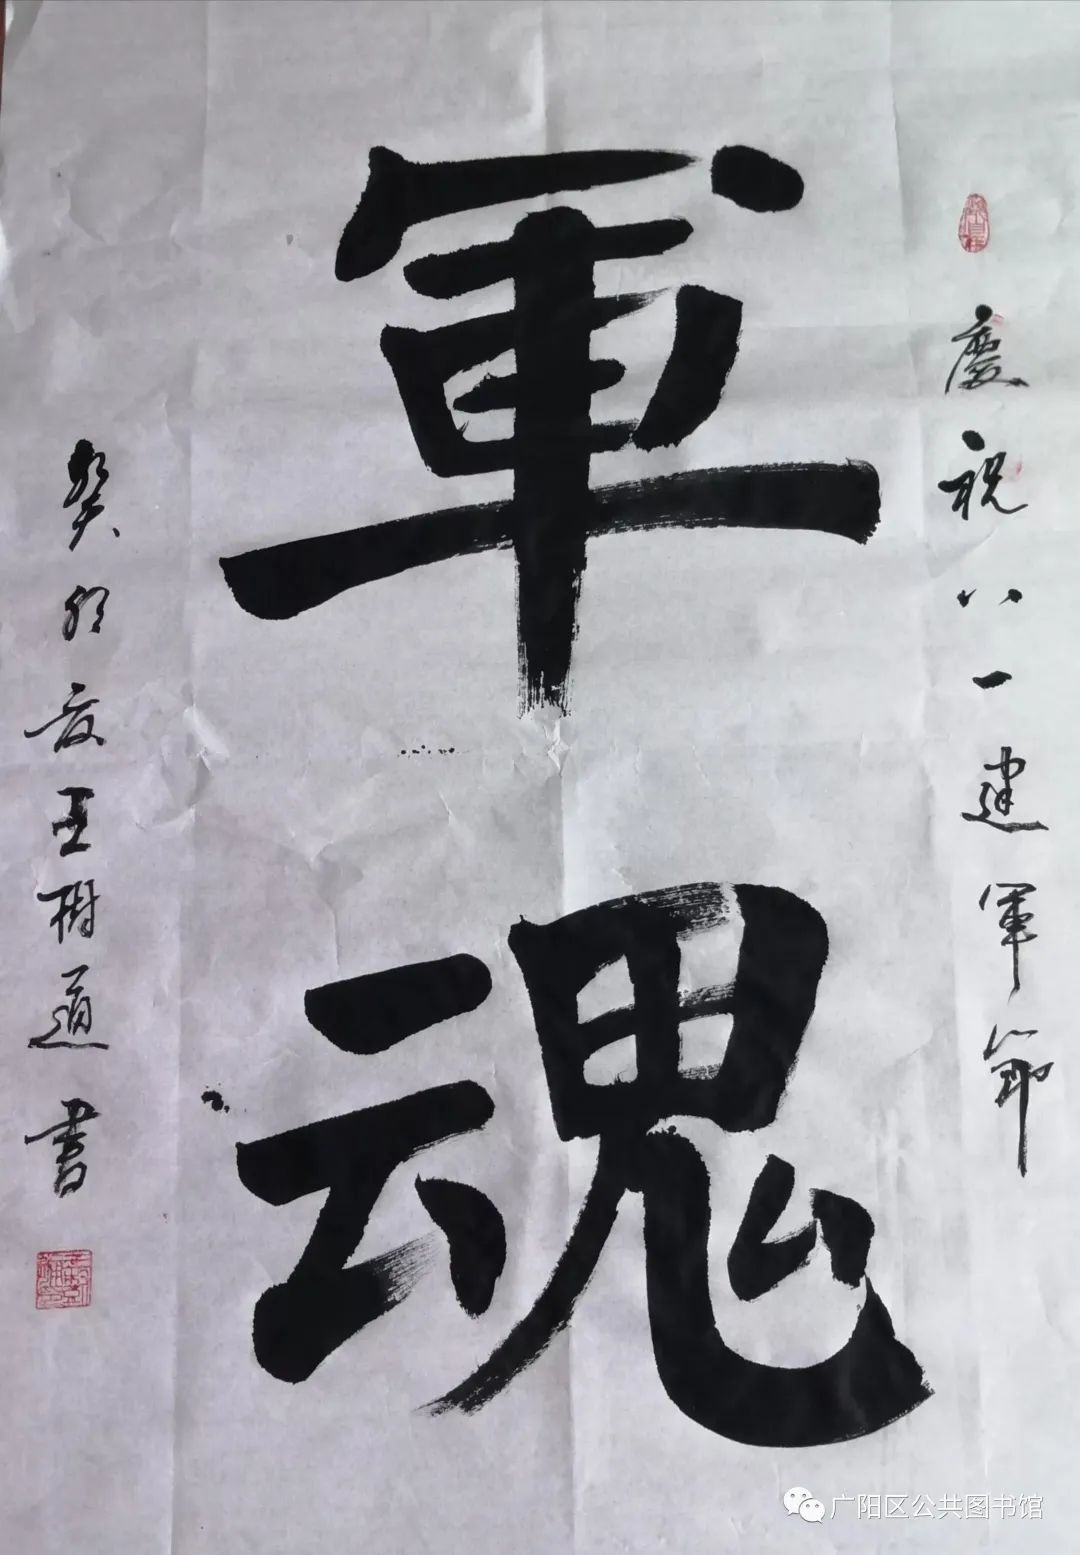 慶祝八一建軍節
軍魂
癸卯夏王樹道書
广阳区公共图书馆